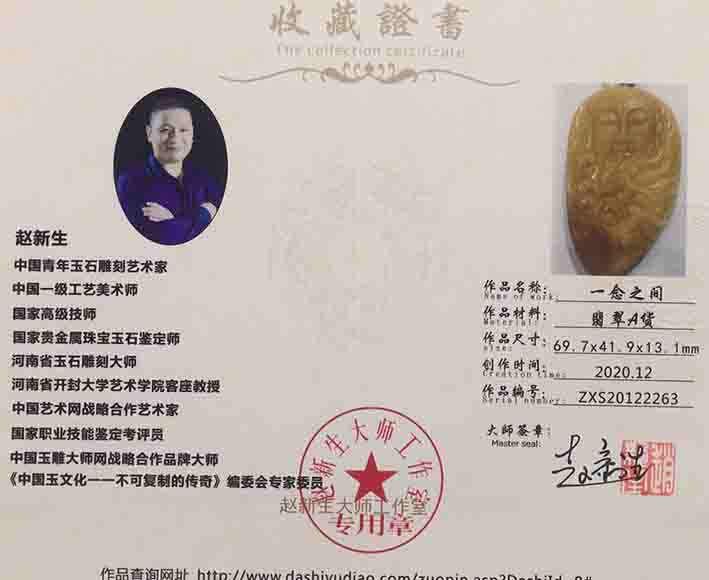 收藏證書
The collection certificate
赵新生
中国青年玉石雕刻艺术家
中国一级工艺美术师
国家高级技师
国家贵金属珠宝玉石鉴定师
河南省玉石雕刻大师
河南省开封大学艺术学院客座教授
中国艺术网战略合作艺术家
国家职业技能鉴定考评员
中国玉雕大师网战略合作品牌大师
《中国玉文化——不可复制的传奇》编委会专家委员
作品名称: 一念之间
Name of work:
作品材料: 翡翠A货
Material:
作品尺寸: 69.7x41.9x13.1mm
size:
创作时间: 2020.12
Creation time:
作品编号: ZXS20122263
Serial number:
大师签章:
Master seal:
赵新生大师工作室
专用章
赵新生大师工作室
作品查询网址 http://www.dashiyudiao.com/zuopin.asp?DashiId=